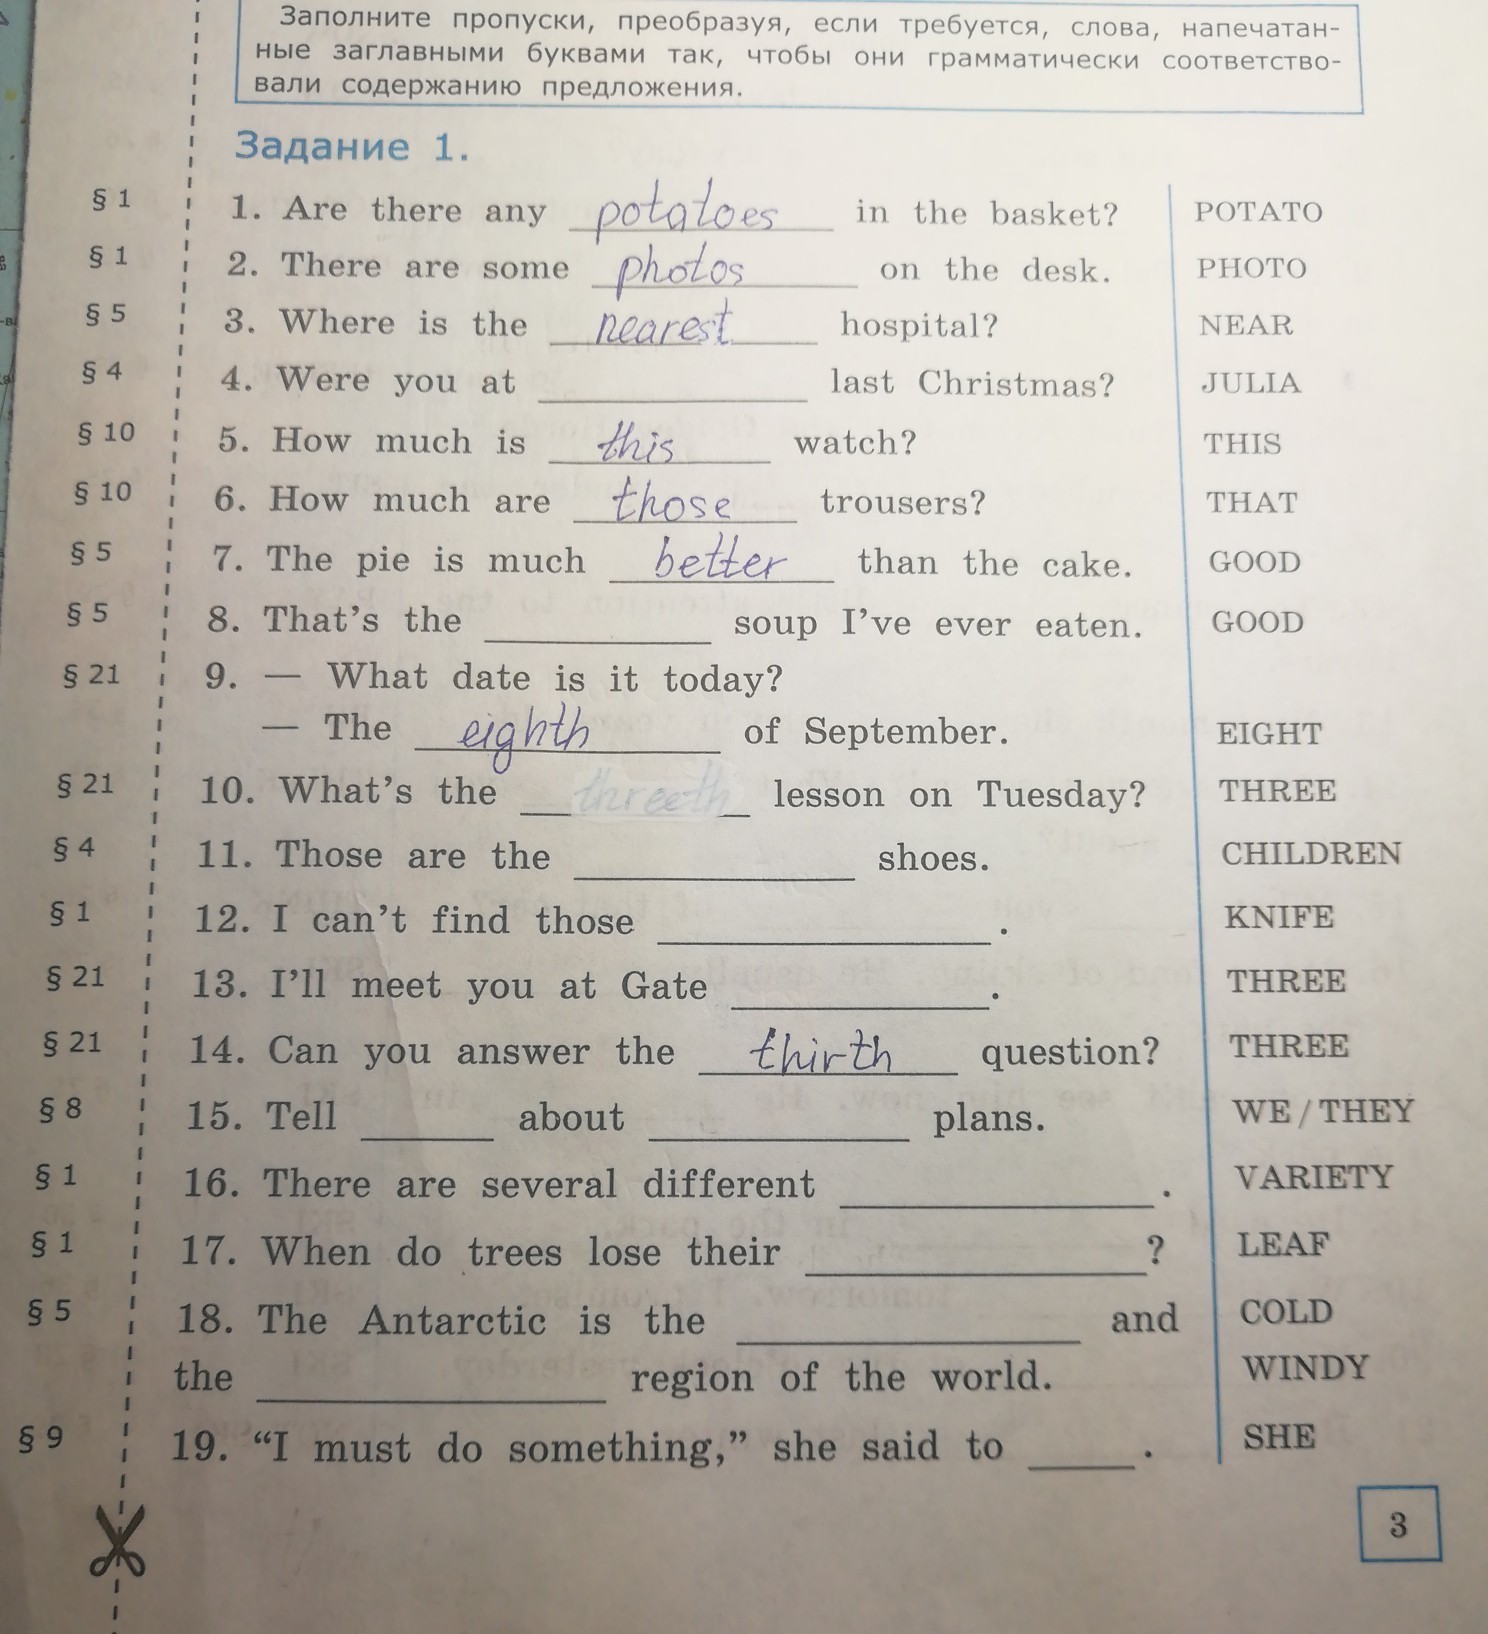 Заполните пропуски, преобразуя, если требуется, слова, напечатан-
ные заглавными буквами так, чтобы они грамматически соответство-
вали содержанию предложения.
Задание 1.
§ 1 1. Are there any potatoes in the basket? POTATO
§ 1 2. There are some photos on the desk. PHOTO
§ 5 3. Where is the nearest hospital? NEAR
§ 4 4. Were you at ____ last Christmas? JULIA
§ 10 5. How much is this watch? THIS
§ 10 6. How much are those trousers? THAT
§ 5 7. The pie is much better than the cake. GOOD
§ 5 8. That's the ____ soup I've ever eaten. GOOD
§ 21 9. — What date is it today?
— The eighth of September. EIGHT
§ 21 10. What's the threeth lesson on Tuesday? THREE
§ 4 11. Those are the ____ shoes. CHILDREN
§ 1 12. I can't find those ____. KNIFE
§ 21 13. I'll meet you at Gate ____. THREE
§ 21 14. Can you answer the thirth question? THREE
§ 8 15. Tell ____ about ____ plans. WE / THEY
§ 1 16. There are several different ____. VARIETY
§ 1 17. When do trees lose their ____? LEAF
§ 5 18. The Antarctic is the ____ and COLD
the ____ region of the world. WINDY
§ 9 19. “I must do something,” she said to ____. SHE
3